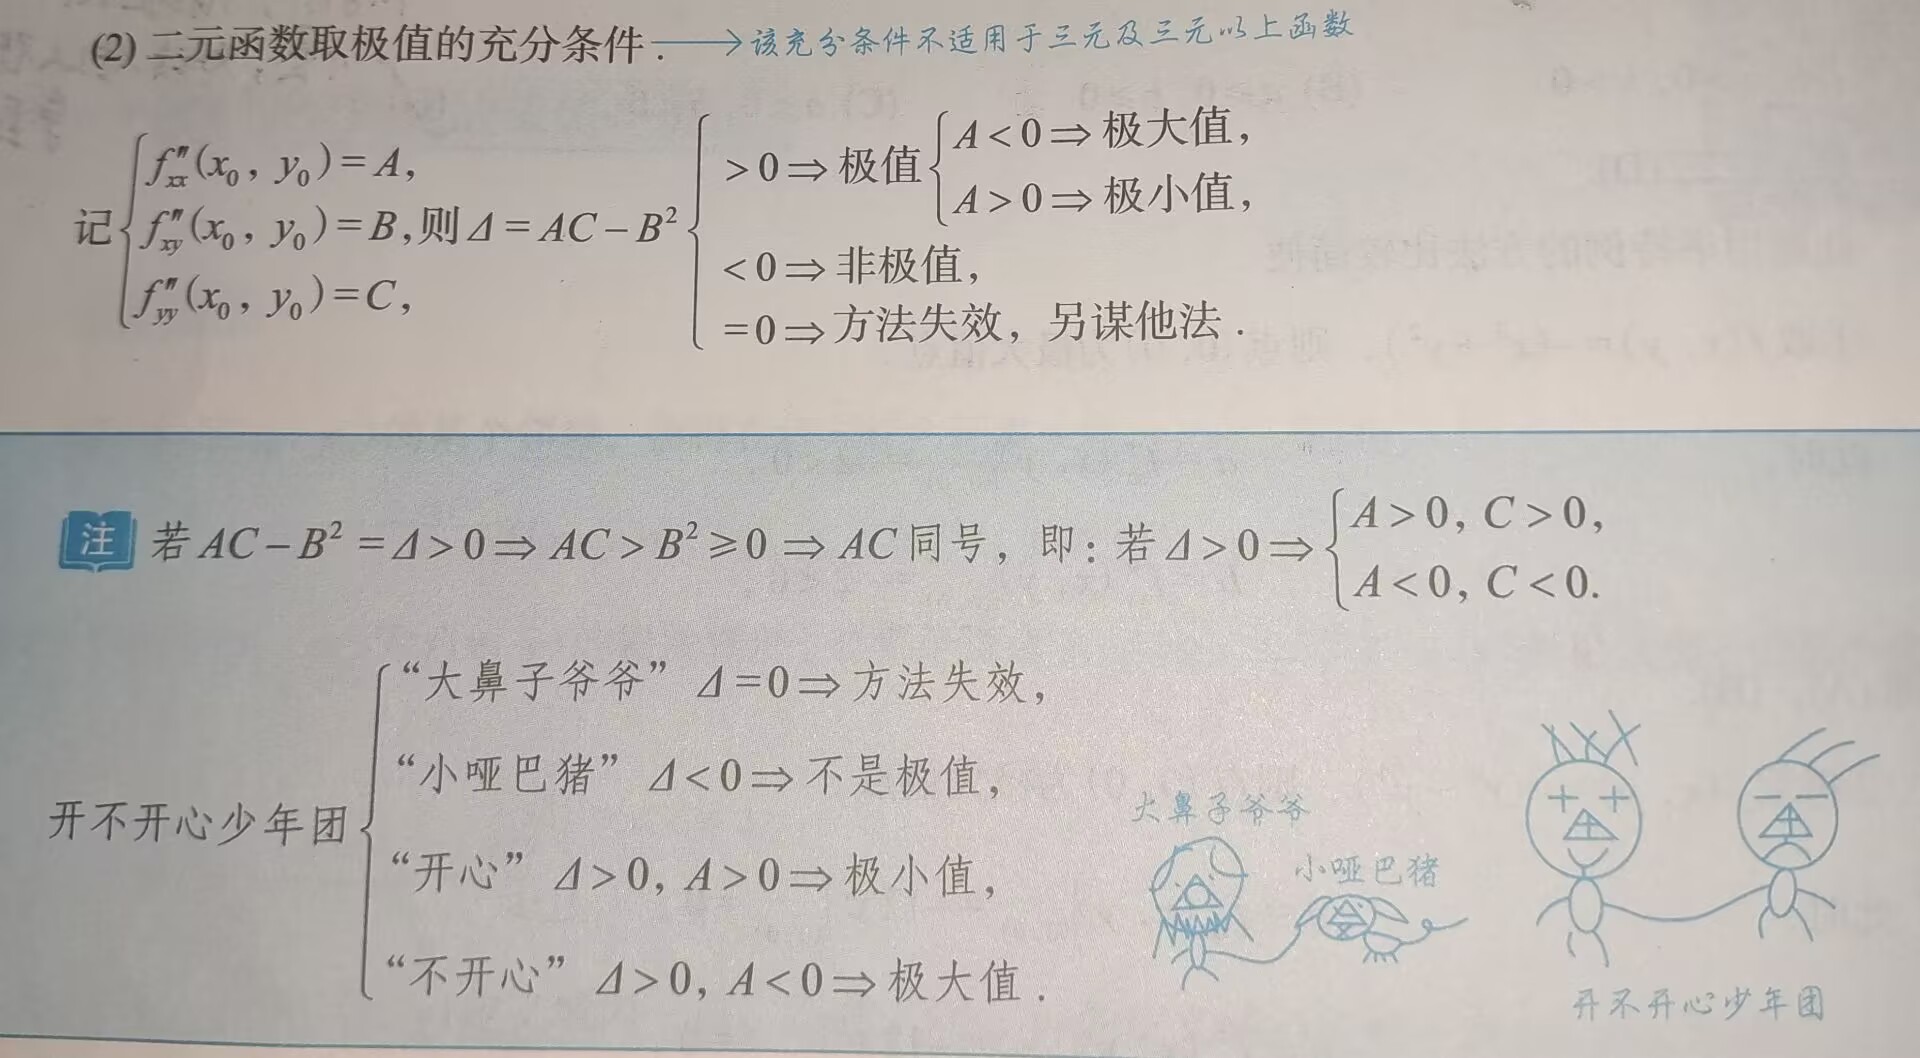 (2) 二元函数取极值的充分条件. ⟶ 该充分条件不适用于三元及三元以上函数
记 { f″xx(x₀, y₀) = A,
f″xy(x₀, y₀) = B, 则 Δ = AC − B²
f″yy(x₀, y₀) = C,
{ >0 ⇒ 极值 { A < 0 ⇒ 极大值,
A > 0 ⇒ 极小值,
<0 ⇒ 非极值,
=0 ⇒ 方法失效, 另谋他法.
注 若 AC − B² = Δ > 0 ⇒ AC > B² ≥ 0 ⇒ AC 同号, 即: 若 Δ > 0 ⇒ { A > 0, C > 0,
A < 0, C < 0.
开不开心少年团 { “大鼻子爷爷” Δ = 0 ⇒ 方法失效,
“小哑巴猪” Δ < 0 ⇒ 不是极值,
“开心” Δ > 0, A > 0 ⇒ 极小值,
“不开心” Δ > 0, A < 0 ⇒ 极大值.
大鼻子爷爷
小哑巴猪
开不开心少年团